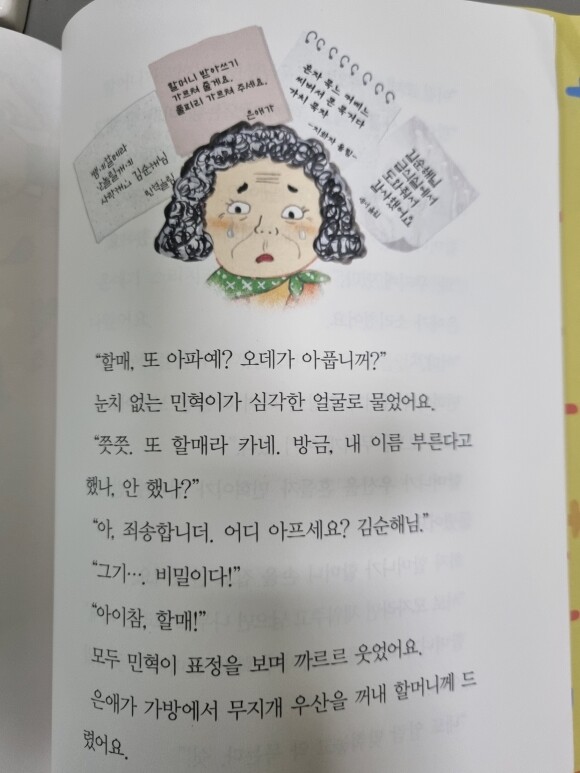 할머니 받아쓰기
가르쳐 줄게요.
풀피리 가르쳐 주세요.
은애가
혼자 묵느 거머느
씨바서 몬 묵거다
가치 묵자
오늘 할게예
사랑해요 김순해님
민혁올림
김순해님
급식실에서
도와줘서
감사했어요
“할매, 또 아파예? 오데가 아풉니꺼?”
눈치 없는 민혁이가 심각한 얼굴로 물었어요.
“쯧쯧. 또 할매라 카네. 방금, 내 이름 부른다고
했나, 안 했나?”
“아, 죄송합니더. 어디 아프세요? 김순해님.”
“그기…. 비밀이다!”
“아이참, 할매!”
모두 민혁이 표정을 보며 까르르 웃었어요.
은애가 가방에서 무지개 우산을 꺼내 할머니께 드
렸어요.